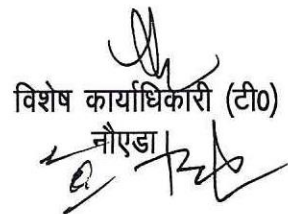 विशेष कार्याधिकारी (टी0)
नौएडा